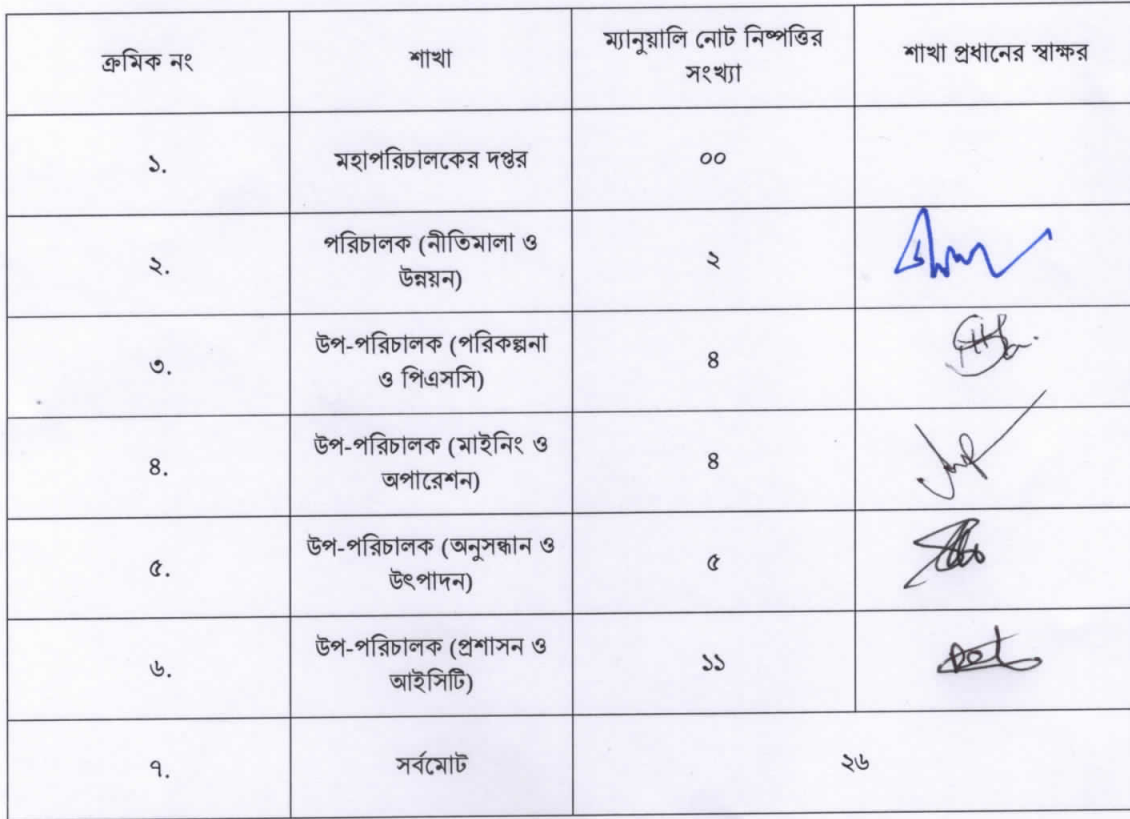 ক্রমিক নং
শাখা
ম্যানুয়ালি নোট নিষ্পত্তির
সংখ্যা
শাখা প্রধানের স্বাক্ষর
১.
মহাপরিচালকের দপ্তর
০০
২.
পরিচালক (নীতিমালা ও
উন্নয়ন)
২
৩.
উপ-পরিচালক (পরিকল্পনা
ও পিএসসি)
৪
৪.
উপ-পরিচালক (মাইনিং ও
অপারেশন)
৪
৫.
উপ-পরিচালক (অনুসন্ধান ও
উৎপাদন)
৫
৬.
উপ-পরিচালক (প্রশাসন ও
আইসিটি)
১১
৭.
সর্বমোট
২৬